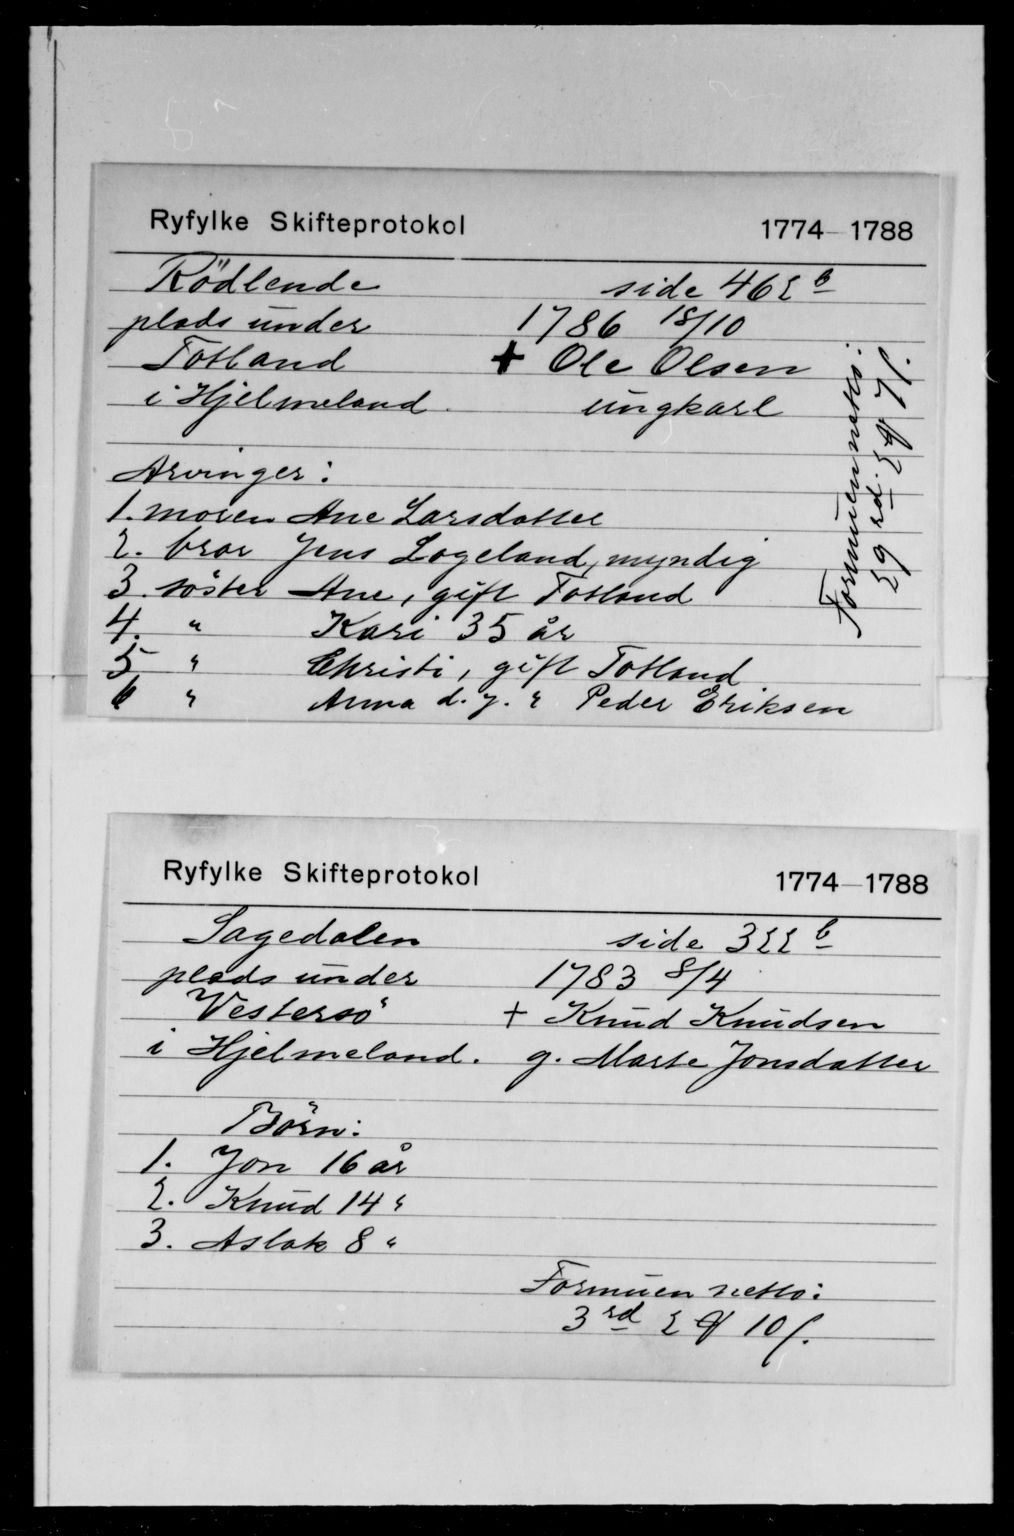 Ryfylke Skifteprotokol 1774-1788
Rödlende side 462 b
plads under 1786 18/10
Totland + Ole Olsen
i Hjelmeland. ungkarl
Arvinger:
1. moren Ane Larsdatter
2. bror Jens Logeland, myndig
3. söster Ane, gift Totland
4. " Kari 35 år
5 " Christi, gift Totland
6 " Anna d. y. " Peder Eriksen
Formuen netto:
29 rd. 2 ꝗ 7 ſ.
Ryfylke Skifteprotokol 1774-1788
Sagedalen side 322 b
plads under 1783 8/4
Vestersö + Knud Knudsen
i Hjelmeland. g. Marte Jonsdatter
Börn:
1. Jon 16 år
2. Knud 14 "
3. Aslak 8 "
Formuen netto:
3 rd 2 ꝗ 10 ſ.